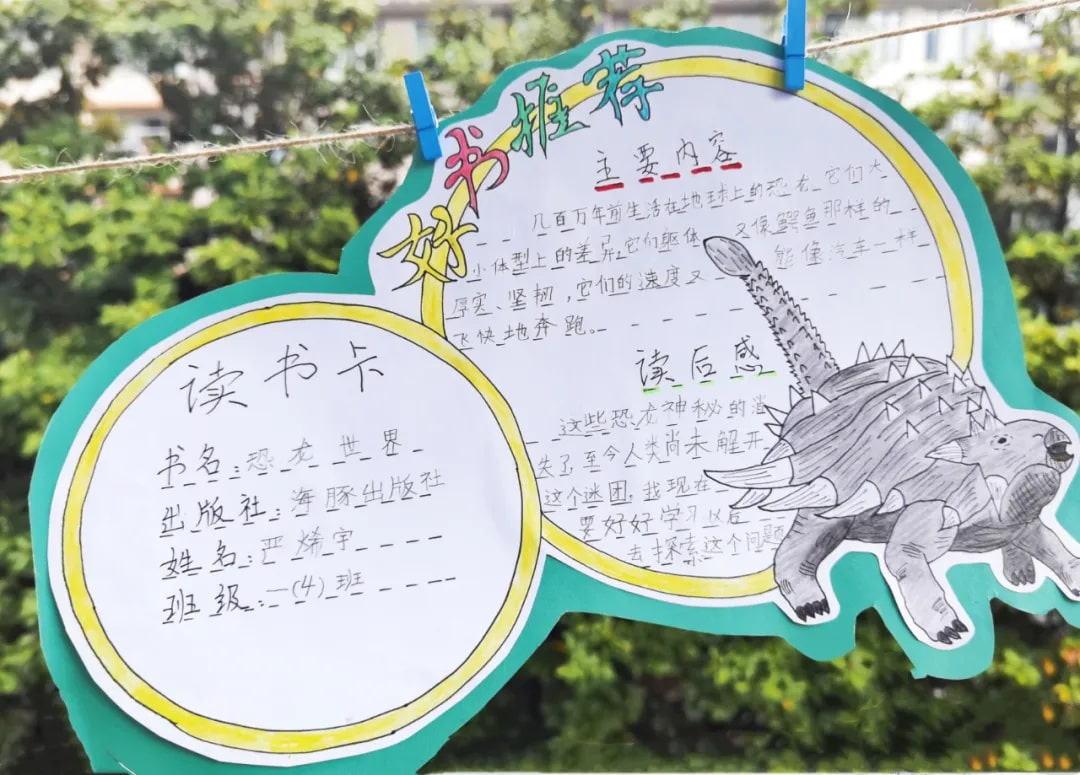 好书推荐
主要内容
几百万年前生活在地球上的恐龙它们大
小体型上的差异,它们躯体 又像鳄鱼那样的
厚实、坚韧,它们的速度又 能像汽车一样
飞快地奔跑。
读后感
这些恐龙神秘的消
失了至今人类尚未解开
这个迷团,我现在
要好好学习以后
去探索这个问题
读书卡
书名:恐龙世界
出版社:海豚出版社
姓名:严烯宇
班级:一(4)班